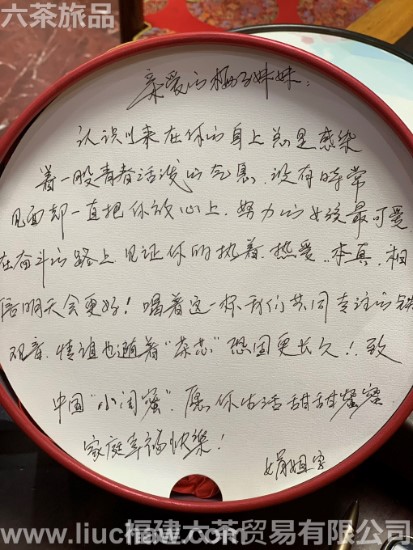 六茶旅品
亲爱的梅子妹妹:
认识以来在你的身上总是感染
着一股青春活泼的气息,没有时常
见面却一直把你放心上,努力的女孩最可爱
在奋斗的路上见证你的热着、热爱、本真,相
信明天会更好!喝着这一杯我们共同专注的铁
观音,情谊也随着“茶芯”稳固更长久!致
中国“小闺蜜”,愿你生活甜甜蜜蜜
家庭幸福快樂!
姐字
www.liuchaw.com
福建六茶贸易有限公司